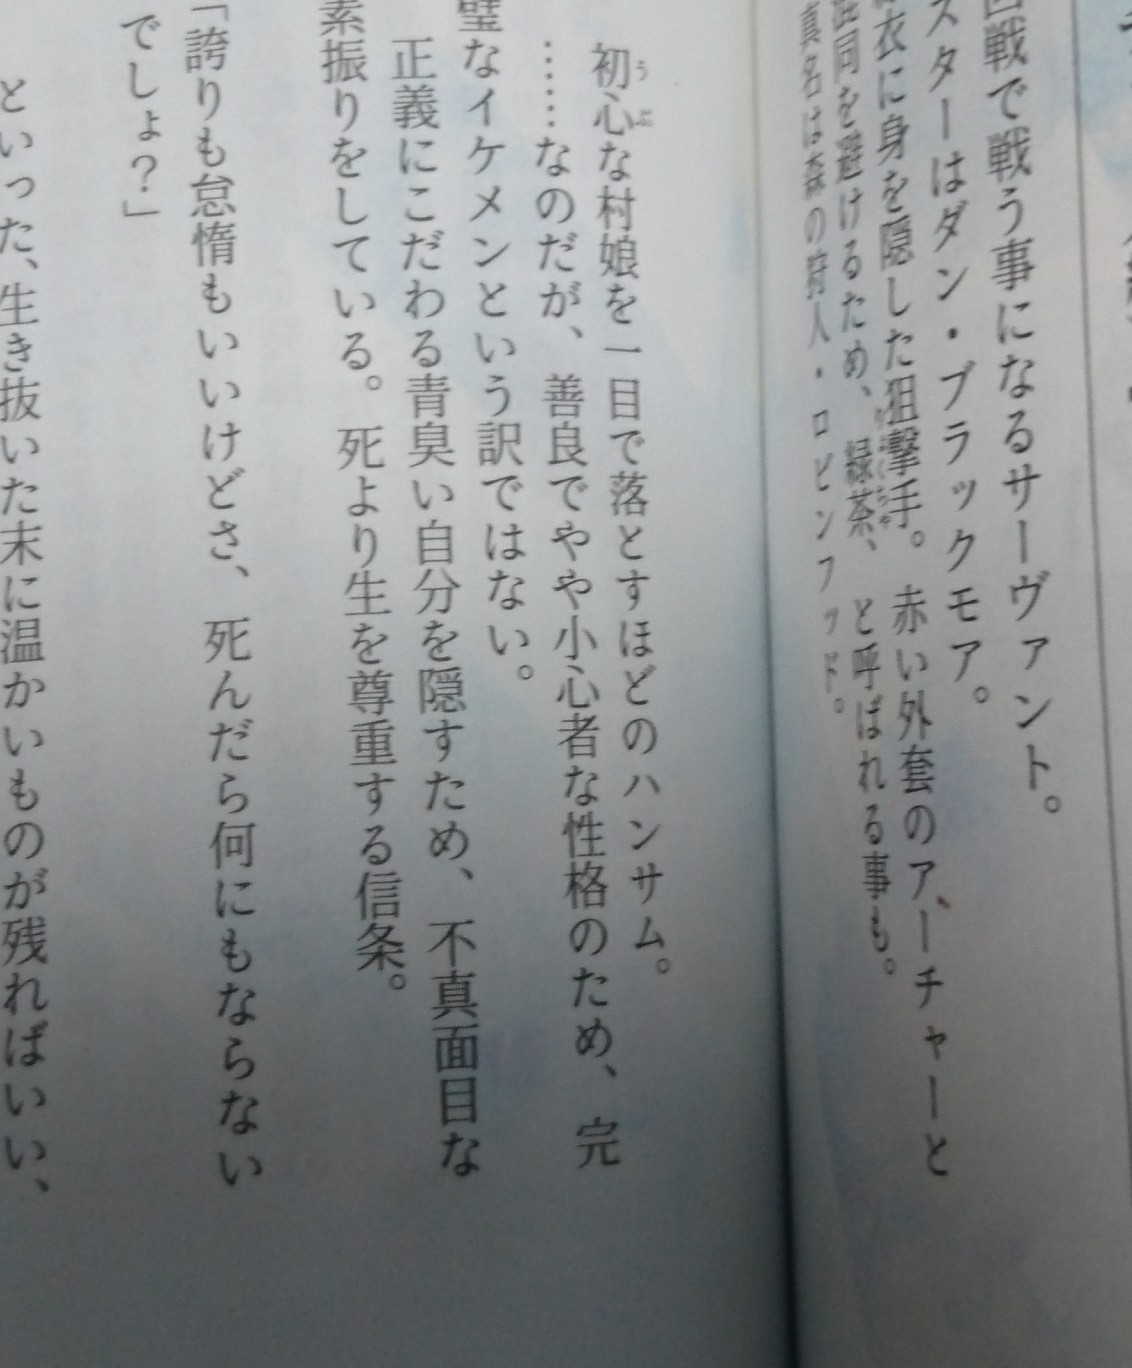 回戦で戦う事になるサーヴァント。
スターはダン・ブラックモア。
衣に身を隠した狙撃手。赤い外套のアーチャーと
混同を避けるため、緑茶、と呼ばれる事も。
りょくちゃ
真名は森の狩人・ロビンフッド。
初心な村娘を一目で落とすほどのハンサム。
うぶ
……なのだが、善良でやや小心者な性格のため、完
璧なイケメンという訳ではない。
正義にこだわる青臭い自分を隠すため、不真面目な
素振りをしている。死より生を尊重する信条。
「誇りも怠惰もいいけどさ、死んだら何にもならない
でしょ？」
といった、生き抜いた末に温かいものが残ればいい、